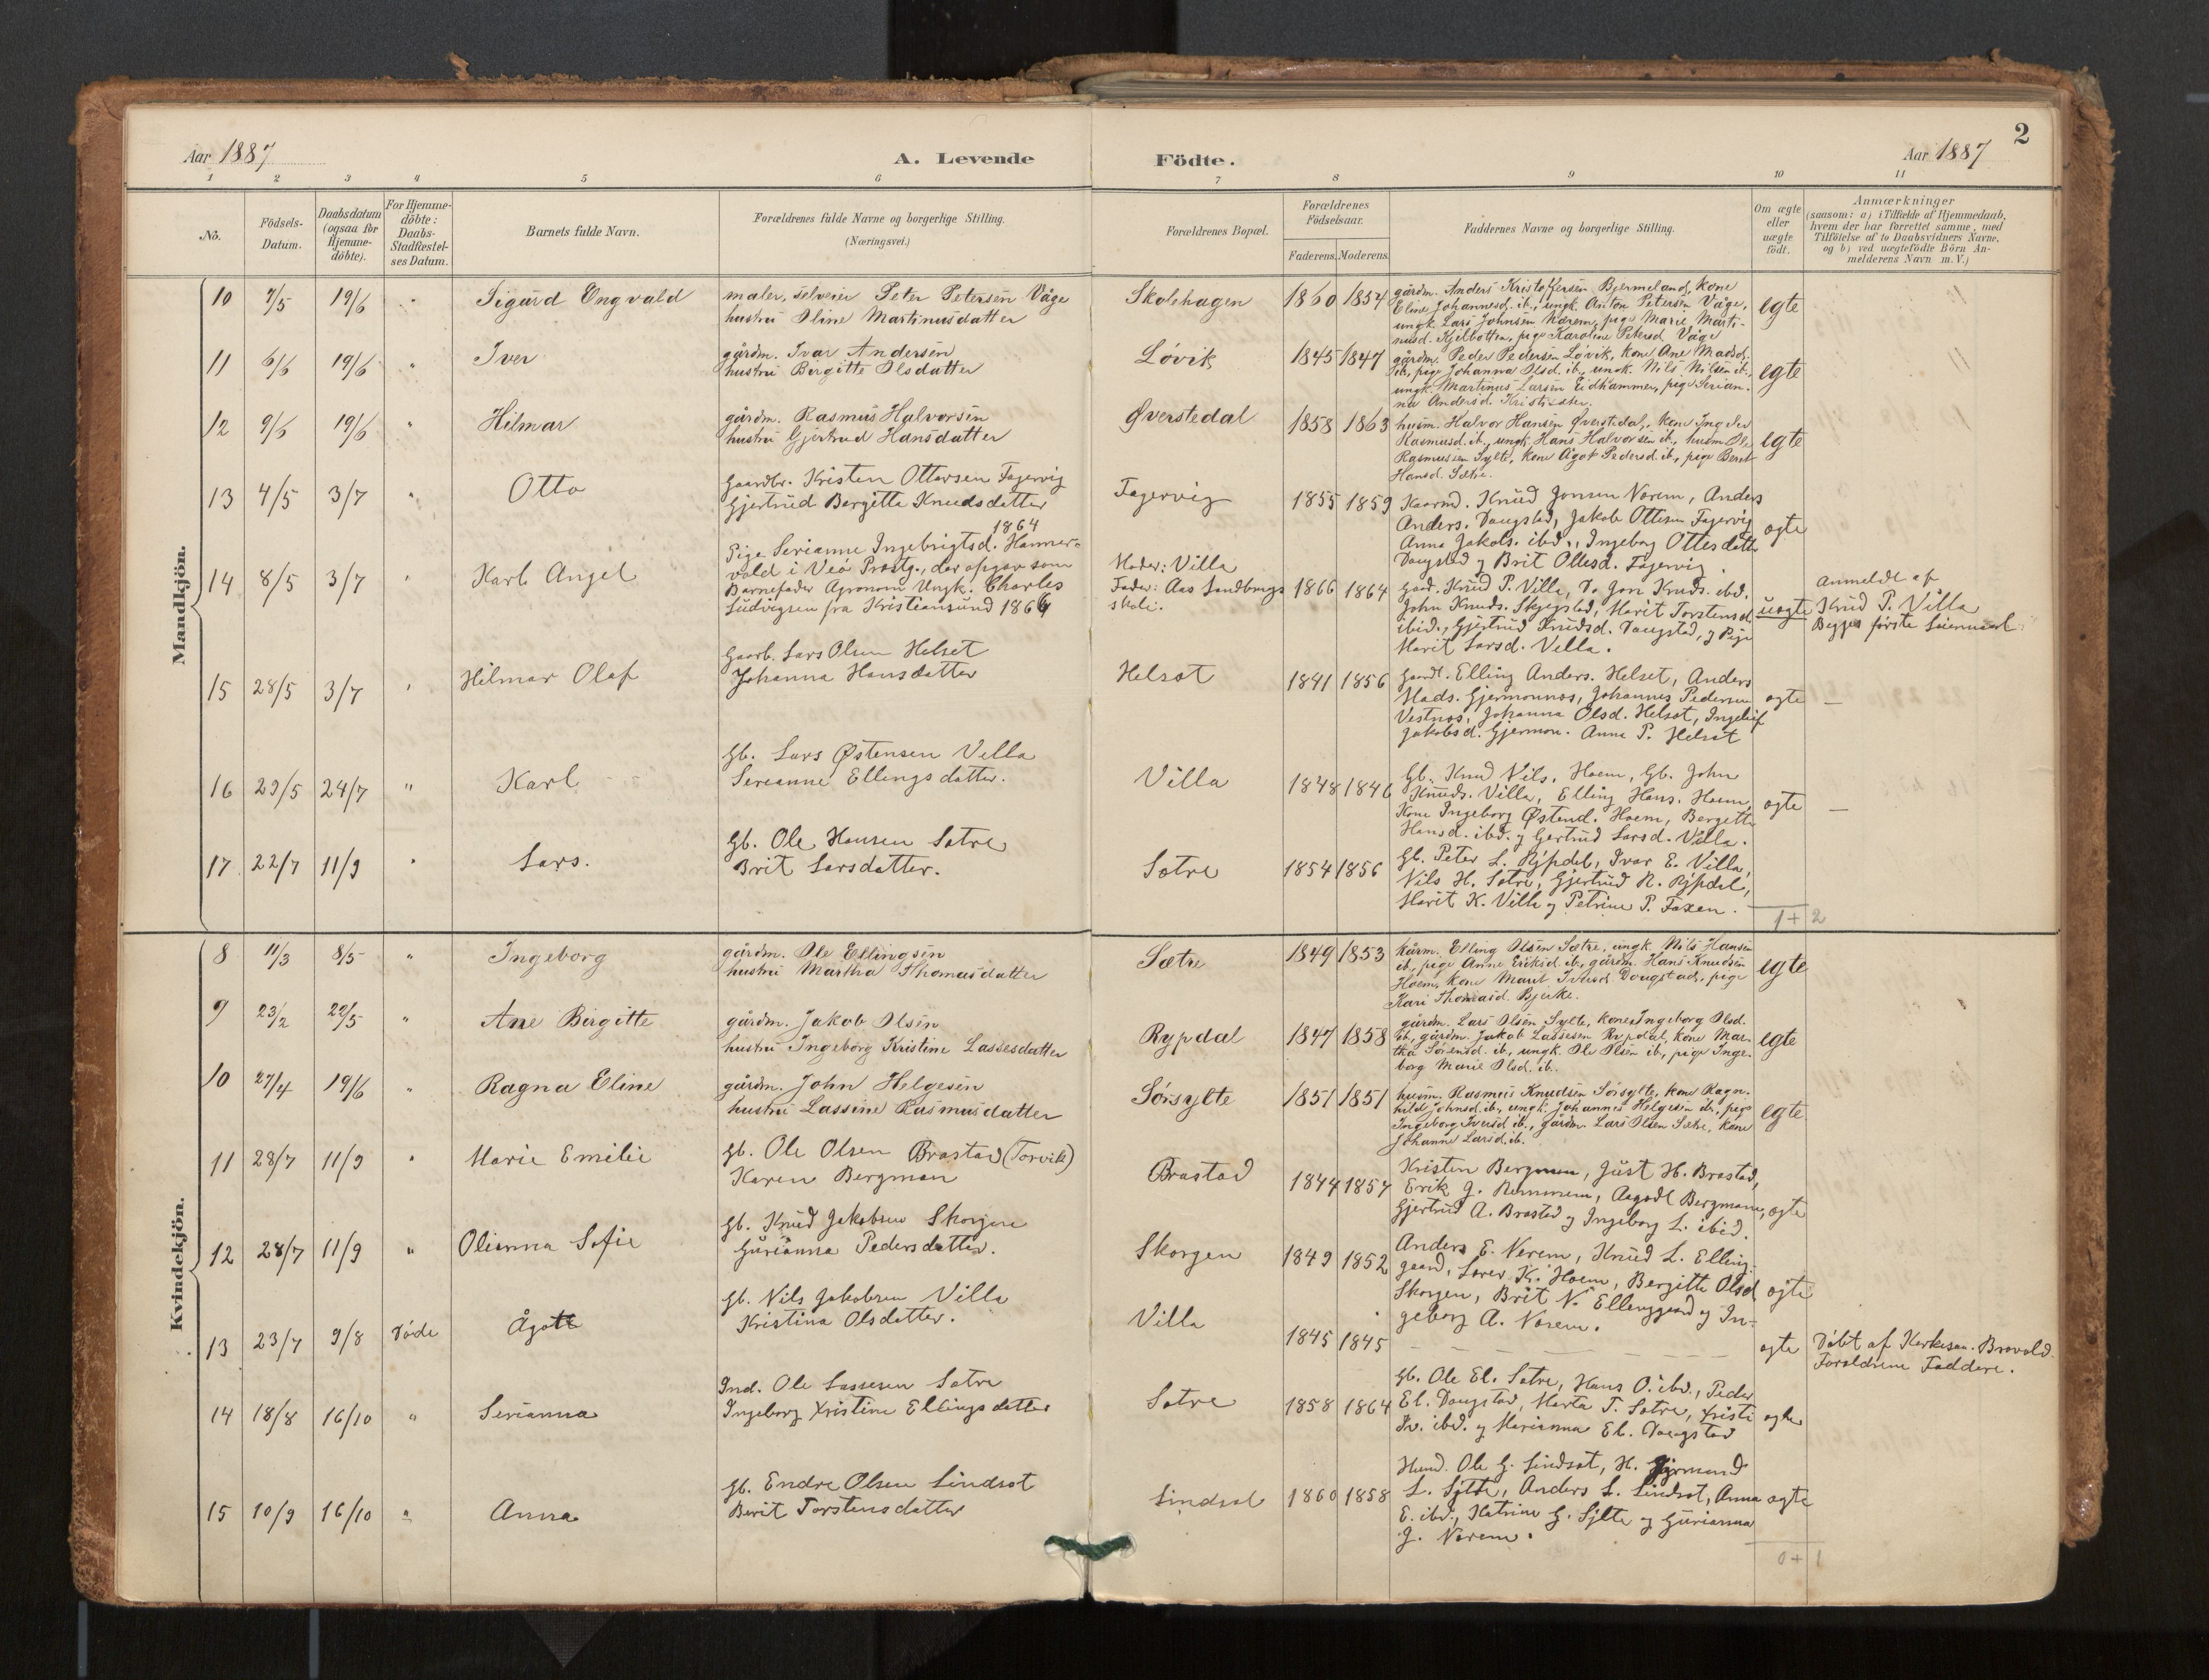 Aar 1887
A. Levende
Fødte.
Aar 1887
2
1 2 3 4 5 6 7 8 9 10 11
No.
Födsels-
Datum.
Daabsdatum
(ogsaa for
Hjemme-
döbte).
For Hjemme-
döbte:
Daabs-
Stadfæstel-
ses Datum.
Barnets fulde Navn.
Forældrenes fulde Navne og borgerlige Stilling.
(Næringsvei.)
Forældrenes Bopæl.
Forældrenes
Födselsaar.
Faderens. Moderens.
Faddernes Navne og borgerlige Stilling.
Om ægte
eller
uægte
født.
Anmærkninger
(saasom: a) i Tilfælde af Hjemmedaab,
hvem der har forrettet samme, med
Tilföielse af to Daabsvidners Navne,
og b) ved uægtefödte Börn An-
melderens Navn m. V.)
Mandkjön.
10 7/5 19/6 " Sigurd Engvald
maler, selveier Peter Petersen Våge
hustru Oline Martinusdatter
Skolehagen 1860 1854
gårdm. Anders Kristoffersen Bjermeland, kone
Eline Johannesd. ib., ungk. Anton Petersen Våge,
ungk. Lars Johnsen Nærem, pige Marie Marti-
nusd. Kjelbotten, pige Karoline Petersd. Våge
egte
11 6/6 19/6 " Iver
gårdm. Ivar Andersen
hustru Birgitte Olsdatter
Løvik 1845 1847
gårdm. Peder Pedersen Løvik, kone Ane Madsd.
ib., pige Johanna Olsd. ib., ungk. Nils Nilsen ib.,
ungk. Martinus Larsen Eidhammer, pige Serian-
na Andersd.
egte
12 9/6 19/6 " Hilmar
gårdm. Rasmus Halvorsen
hustru Gjertrud Hansdatter
Øverstedal 1858 1863
husm. Halvor Hansen Øverstedal, kone Ingeder
Rasmusd. ib., ungk. Hans Halvorsen ib., husm. Ole
Rasmussen Sylte, kone Ågot Pedersd. ib., pige Beret
Hansd. Sætre.
egte
13 4/5 3/7 " Otto
Gaardbr. Kristen Ottersen Fagervig
Gjertrud Bergitta Knudsdatter
Fagervig 1855 1859
Kaarmd. Knud Jonsen Norem, Anders
Anders. Dougstad, Jakob Ottesen Fagervig
Anna Jakobs. ibd., Ingeborg Ottesdatter
Dougstad og Brit Ottesd. Fagervig.
ægte
14 8/5 3/7 " Karl Angel
1864
Pige Serianne Ingebrigtsd. Hammer-
vold i Veø Prestg., der opgav som
Barnefader Agronom Ungk. Charles
Ludvigsen fra Kristiansund 1866
Moder: Villa
Fader: Aas Landbrugs
skole.
1866 1864
Gaard. Knud P. Villa, Do Jon Knuds. ibd.
John Knuds. Skjegstad, Marit Torstensd.
ibid., Gjertrud Knudsd. Dougstad, og Pige
Marit Larsd. Villa.
uægte
Anmeldt af
Knud P. Villa
Begges første Leiermaal
15 28/5 3/7 " Hilmar Olaf
Gaarb. Lars Olsen Helset
Johanna Hansdatter
Helset 1841 1856
Gaardb. Elling Anders. Helset, Anders
Mads. Gjermonnes, Johannes Pedersen
Vestnes, Johanna Olsd. Helset, Ingeleif
Jakobsd. Gjermon. Anna P. Helset
ægte —
16 29/5 24/7 " Karl
Gb. Lars Østensen Villa
Serianne Ellingsdatter.
Villa 1848 1846
Gb. Knud Nils. Hoem, Gb. John
Knuds. Villa, Elling Hans. Hoem,
Kone Ingeborg Østend. Hoem, Bergitte
Hansd. ibd. og Gertrud Larsd. Villa.
ægte —
17 22/7 11/9 " Lars.
Gb. Ole Hansen Sætre
Brit Larsdatter.
Sætre 1854 1856
Gb. Peter L. Rypdal, Ivar E. Villa,
Nils H. Sætre, Gjertrud R. Rypdal,
Marit K. Villa og Petrine P. Faxen.
1+2
Kvindekjön.
8 11/3 8/5 " Ingeborg
gårdm. Ole Ellingsen
hustru Martha Thomasdatter
Sætre 1849 1853
kårm. Elling Olsen Sætre, ungk. Nils Hansen
ib., pige Anne Eriksd. ib., gårdm. Hans Knudsen
Hoem, kone Marit Iversd. Dougstad, pige
Kari Thomasd. Bjerke.
egte
9 23/2 22/5 " Ane Birgitte
gårdm. Jakob Olsen
hustru Ingeborg Kristine Lassesdatter
Rypdal 1847 1858
gårdm. Lars Olsen Sylte, kone Ingeborg Olsd.
ib., gårdm. Jakob Lassesen Rypdal, kone Mar-
tha Sørensd. ib., ungk. Ole Olsen ib., pige Inge-
borg Marie Olsd. ib.
egte
10 27/4 19/6 " Ragna Eline
gårdm. John Helgesen
hustru Lassine Rasmusdatter
Sørsylte 1851 1851
husm. Rasmus Knudsen Sørsylte, kone Ragn-
hild Johnsd. ib., ungk. Johannes Helgesen do., pige
Ingeborg Iversd. ib., gårdm. Lars Olsen Sætre, kone
Johanne Larsd. ib.
egte
11 28/7 11/9 " Marie Emilie
Gb. Ole Olsen Brastad (Torvik)
Karen Bergman
Brastad 1844 1857
Kristen Bergman, Just H. Brastad,
Erik J. Remmem, Aagodt Bergmann,
Gjertrud A. Brastad og Ingeborg L. ibid.
ægte
12 28/7 11/9 " Olianna Sofie
Gb. Knud Jakobsen Skorgen
Gurianna Pedersdatter.
Skorgen 1849 1852
Anders E. Nerem, Knud L. Elling-
gaard, Soren K. Hoem, Bergitte Olsd
Skorgen, Brit N. Ellinggaard og In-
geborg A. Norem.
ægte
13 23/7 9/8 døde Ågotte
Gb. Nils Jakobsen Villa
Kristina Olsdatter.
Villa 1845 1845
— — — — —
ægte
Døbt af Kirkesan. Brovold.
Forældrene Faddere.
14 18/8 16/10 " Serianna
Ind. Ole Lassesen Sætre
Ingeborg Kristine Ellingsdatter
Sætre 1858 1864
Gb. Ole El. Sætre, Hans O. ibd., Peder
El. Dougstad, Marta T. Sætre, Kristi
Iv. ibd. og Marianna El. Dougstad
ægte
15 10/9 16/10 " Anna
Gb. Endre Olsen Lindset
Berit Torstensdatter
Lindset 1860 1858
Husmd. Ole G. Lindset, H. Gjermund
L. Sylte, Anders L. Lindset, Anna
E. ibd., Katrine G. Sylte og Gurianna
J. Norem.
ægte
0+1